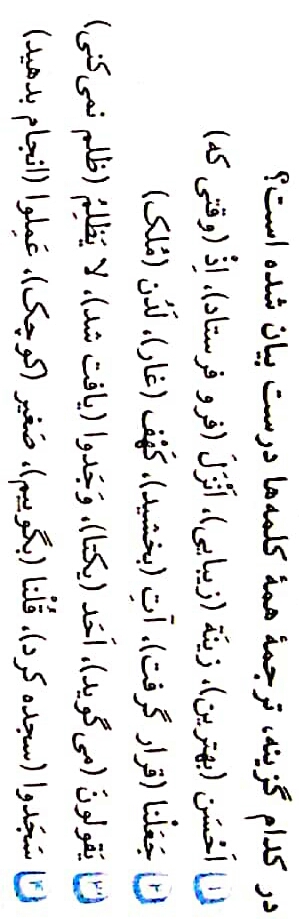 در کدام گزینه، ترجمهٔ همهٔ کلمه‌ها درست بیان شده است؟
۱ اَحْسَن (بهترین)، زینَة (زیبایی)، اَنْزَلَ (فرو فرستاد)، اِذْ (وقتی که)
۲ جَعَلْنا (قرار گرفت)، آتِ (بخشید)، کَهْف (غار)، لَدُن (مُلک)
۳ یَقولونَ (می‌گوید)، اَحَد (یکتا)، وَجَدوا (یافت شد)، لا یَظلِمُ (ظلم نمی‌کنی)
۴ سَجَدوا (سجده کرد)، قُلْنا (بگوییم)، صَغیر (کوچک)، عَمِلوا (انجام بدهید)